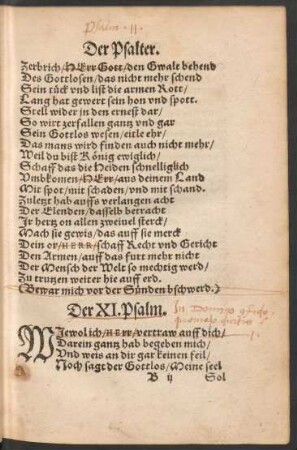 Psalm. 11.
Der Psalter.
Zerbrich/HErr Gott/den Gwalt behend
Des Gottlosen/das nicht mehr schend
Sein tück vnd list die armen Rott/
Lang hat gewert sein hon vnd spott.
Stell wider in den ernest dar/
So wirt zerfallen gantz vnd gar
Sein Gottlos wesen/eitle ehr/
Das mans wird finden auch nicht mehr/
Weil du bist König ewiglich/
Schaff das die Heiden schnelliglich
Vmbkomen/HErr/aus deinem Land
Mit spot/mit schaden/vnd mit schand.
Zuletzt hab auffs verlangen acht
Der Elenden/dasselb betracht
Ir hertz on allen zweiuel sterck/
Mach sie gewis/das auff sie merck
Dein or/HERR/schaff Recht vnd Gericht
Den Armen/auff das furt mehr nicht
Der Mensch der Welt so mechtig werd/
Zu trutzen weiter hie auff erd.
(Bewar mich vor der Sünden bschwerd.)
Der XI. Psalm.
In Domino
WJewol ich/HErr/vertraw auff dich/
Darein gantz hab begeben mich/
Vnd weis an dir gar keinen feil/
Noch sagt der Gottlos/Meine seel
B ij Sol